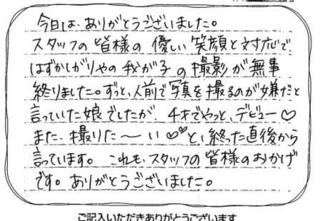 今日は、ありがとうございました。
スタッフの皆様の優しい笑顔と対応で、
はずかしがりやの我が子の撮影が無事
終りました。ずっと、人前で写真を撮るのが嫌だと
言っていた娘でしたが、7才でやっと、デビュー♡
また、撮りた〜い♡♡と、終った直後から
言っています。これも、スタッフの皆様のおかげ
です。ありがとうございました。
ご記入いただきありがとうございます